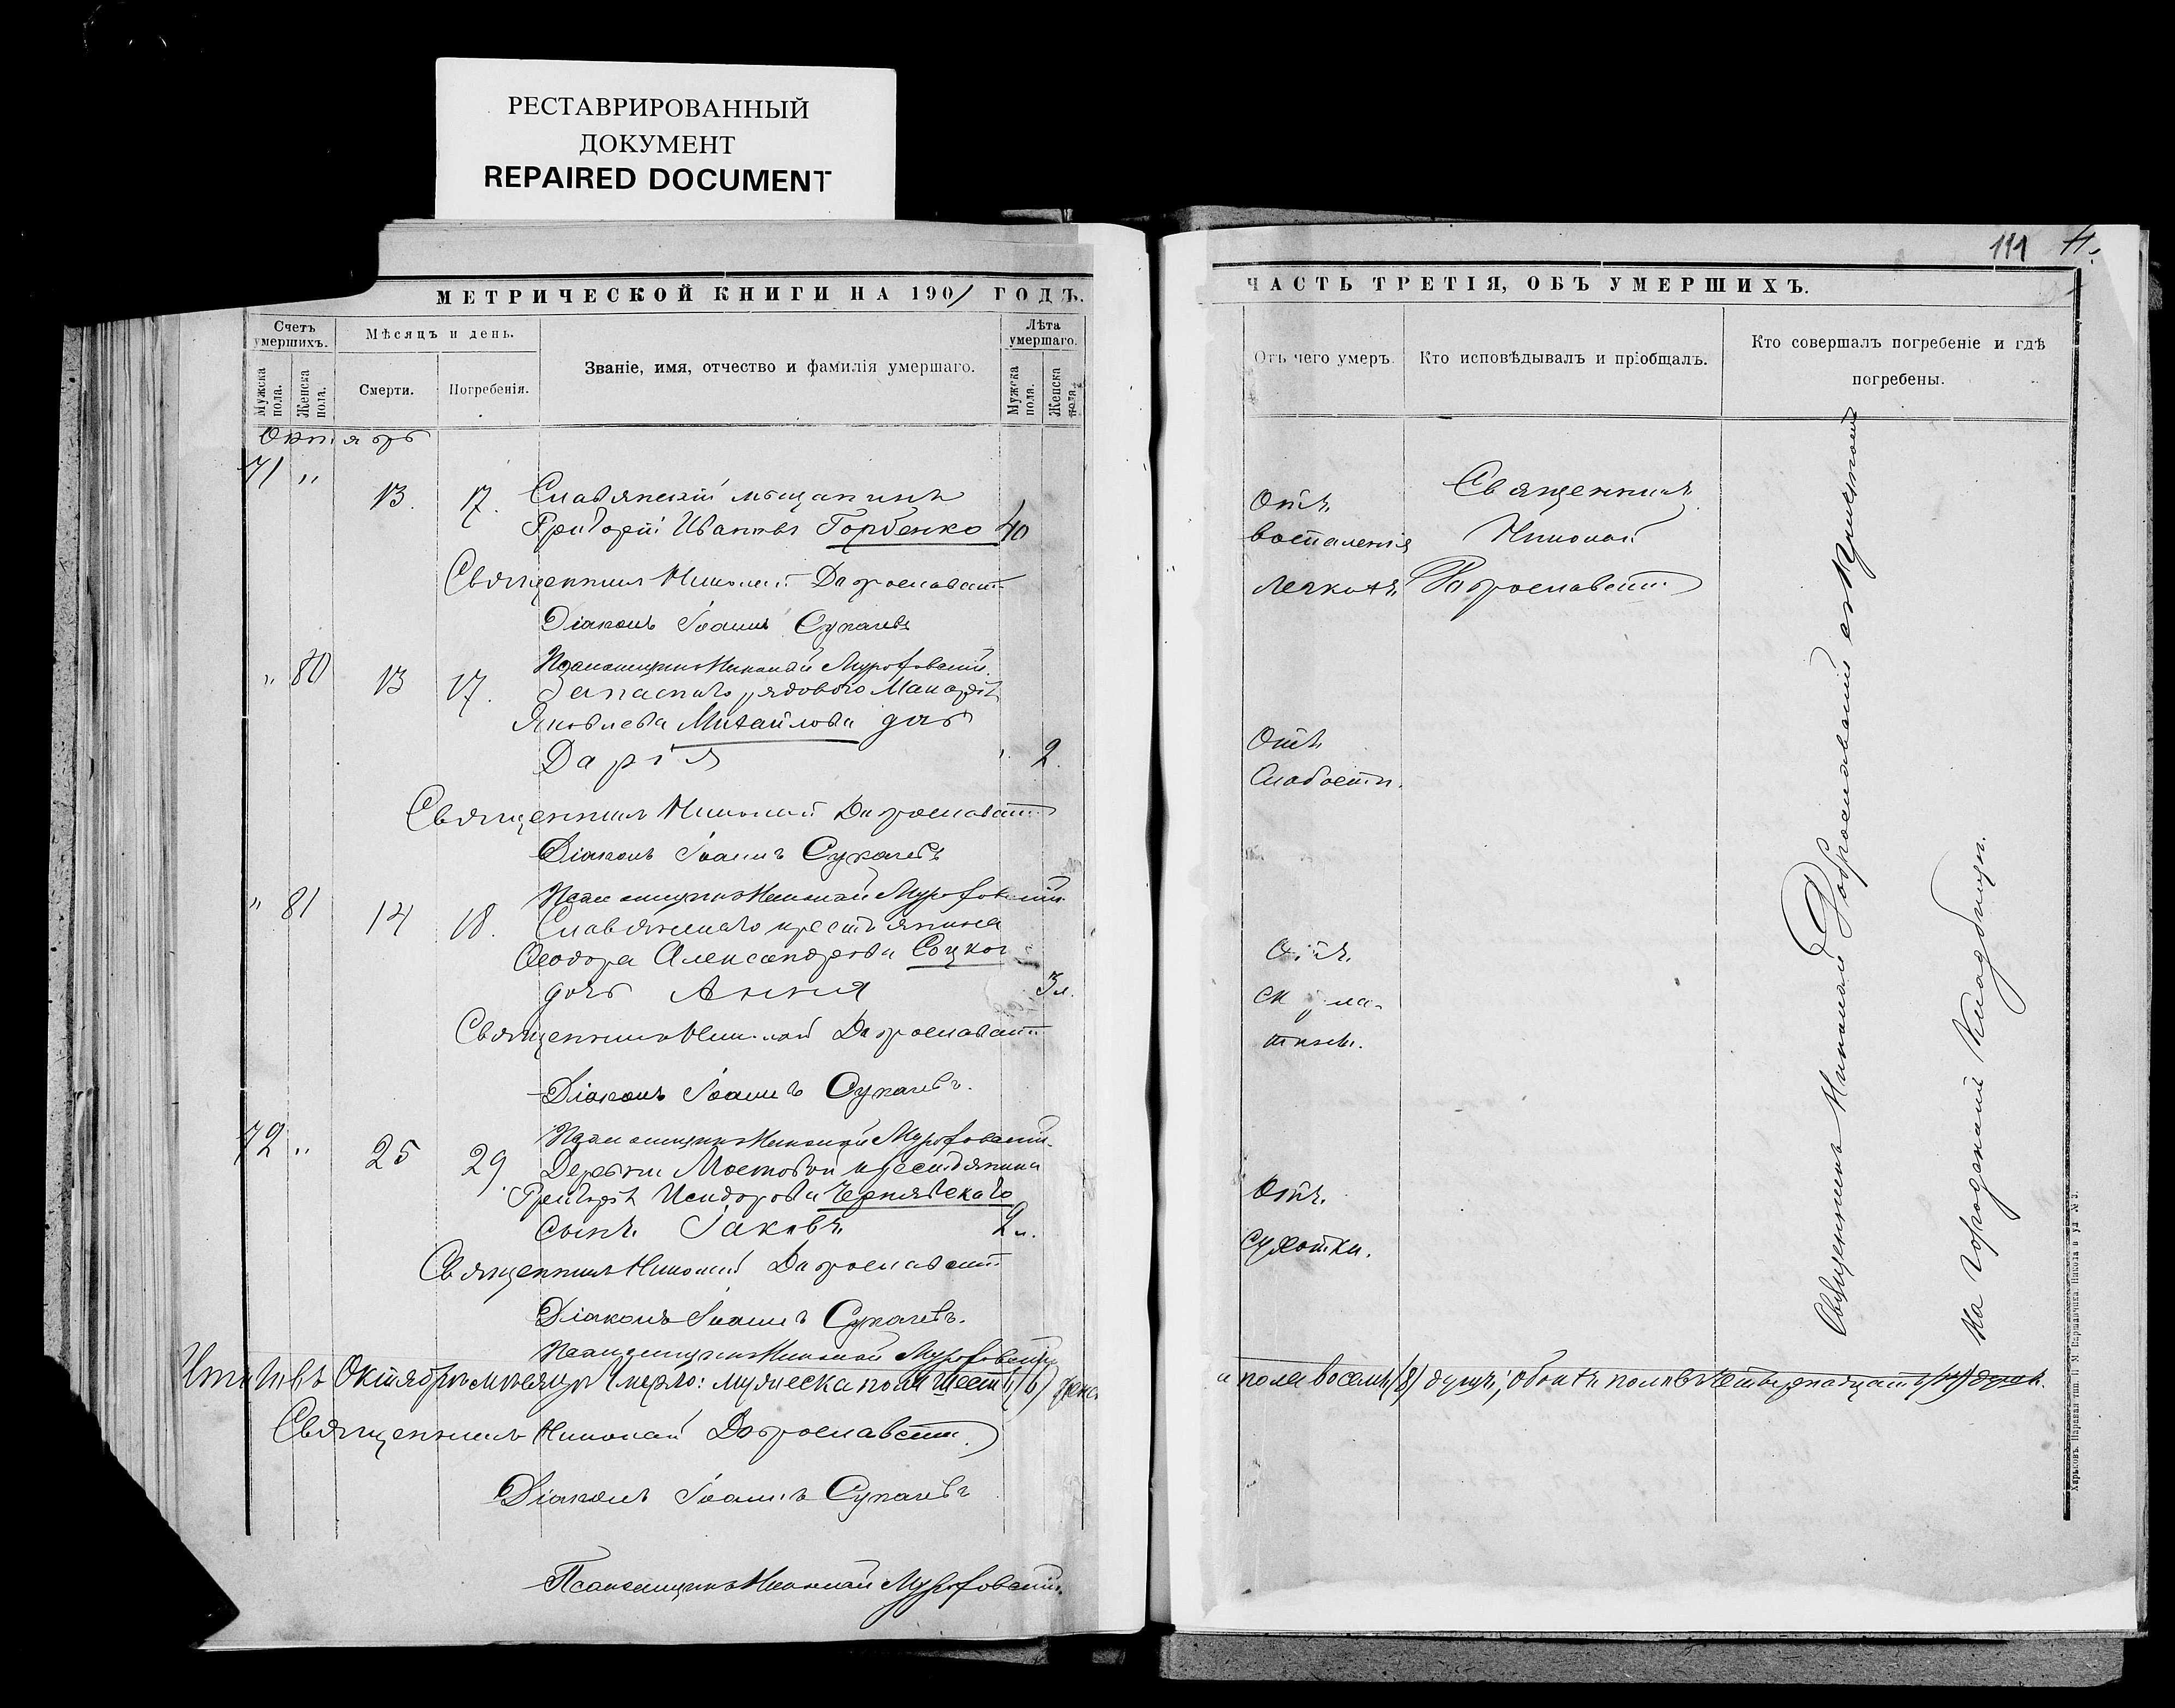 РЕСТАВРИРОВАННЫЙ
ДОКУМЕНТ
REPAIRED DOCUMENT
МЕТРИЧЕСКОЙ КНИГИ НА 1901 ГОДЪ.
Счетъ умершихъ.
Мужска пола.
Женска пола.
Мѣсяцъ и день.
Смерти.
Погребенія.
Званіе, имя, отчество и фамилія умершаго.
Лѣта умершаго.
Мужска пола.
Женска пола.
Октябрь
71 „ 13. 17. Славянскій мѣщанинъ
Григорій Ивановъ Горбенко 40
Священникъ Николай Доброславскій
Діаконъ Іоаннъ Сукачевъ
Псаломщикъ Николай
„ 80 13 17. Запаснаго рядового Макарія
Яковлева Михайлова дочь
Дарія „ 2.
Священникъ Николай Доброславскій
Діаконъ Іоаннъ Сукачевъ
Псаломщикъ Николай
„ 81 14 18. Славянскаго крестьянина
Ѳеодора Александрова
дочь Анна 3 л.
Священникъ Николай Доброславскій
Діаконъ Іоаннъ Сукачевъ.
Псаломщикъ Николай
72 „ 25 29 Деревни Мостовой крестьянина
Григорія Исидорова Чернявскаго
сынъ Іаковъ 2 л.
Священникъ Николай Доброславскій
Діаконъ Іоаннъ Сукачевъ.
Псаломщикъ Николай
Октябрѣ мѣсяцѣ умерло: мужеска пола шесть (6) женс
Священникъ Николай Доброславскій
Діаконъ Іоаннъ Сукачевъ
Псаломщикъ Николай
111
ЧАСТЬ ТРЕТІЯ, ОБЪ УМЕРШИХЪ.
Отъ чего умеръ.
Кто исповѣдывалъ и пріобщалъ.
Кто совершалъ погребеніе и гдѣ погребены.
Отъ Священникъ
воспаленія Николай
легкихъ Доброславскій
Отъ
слабости.
Отъ
скарла-
тины.
Отъ
сухотки.
Священникъ Николай Доброславскій съ причтомъ
на городскомъ кладбищѣ.
пола восемь (8) душъ; обоихъ половъ четырнадцать (14) душъ.